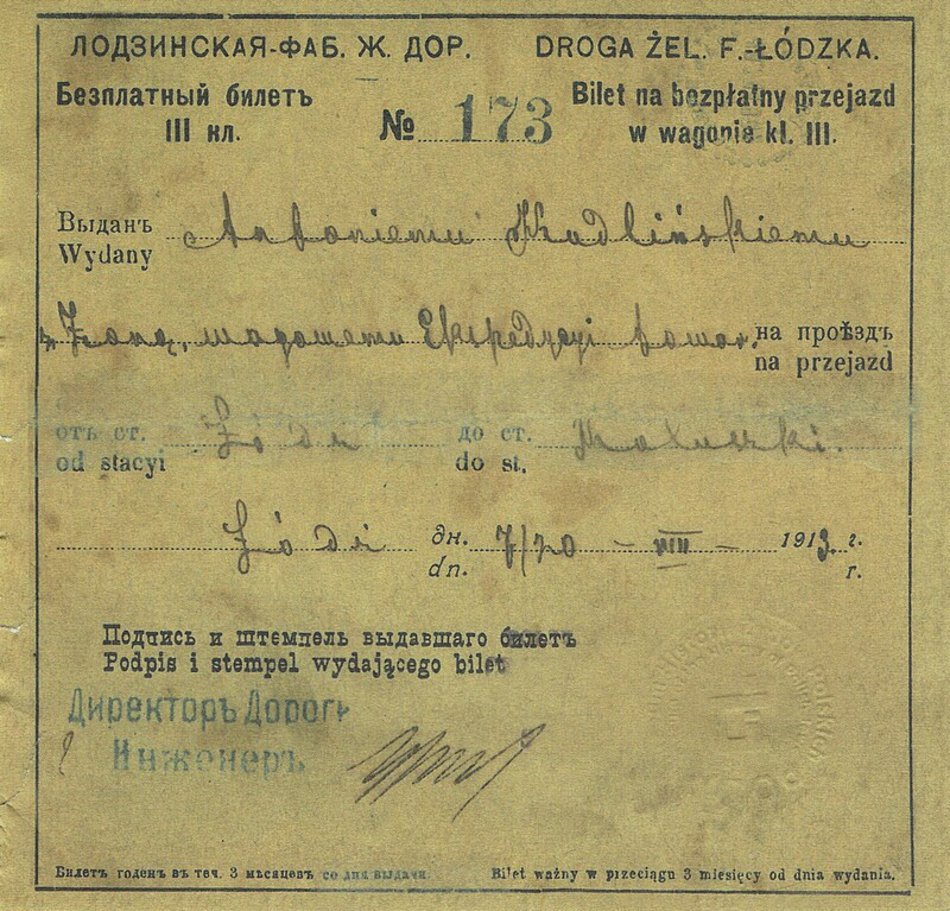 ЛОДЗИНСКАЯ-ФАБ. Ж. ДОР. DROGA ŻEL. F.-ŁÓDZKA.
Безплатный билетъ Bilet na bezpłatny przejazd
III кл. № 173 w wagonie kl. III.
Выданъ
Wydany Antoniemu Kudlińskiemu
z Żoną, wagowemu Ekspedycyi towar. на проѣздъ
na przejazd
отъ ст. Łódź до ст. Koluszki.
od stacyi do st.
Łódź дн. 7/20 – VIII – 1913 г.
dn. r.
Подпись и штемпель выдавшаго билетъ
Podpis i stempel wydającego bilet
Директоръ Дороги
Инженеръ
Билетъ годенъ въ теч. 3 мѣсяцевъ со дня выдачи. Bilet ważny w przeciągu 3 miesięcy od dnia wydania.